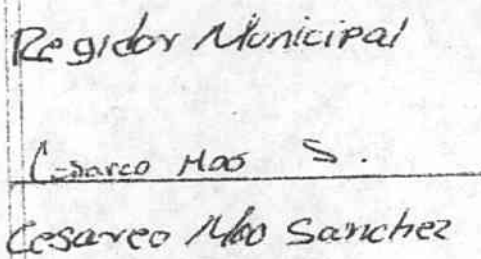 Regidor Municipal
Cesareo Moo S.
Cesareo Moo Sanchez